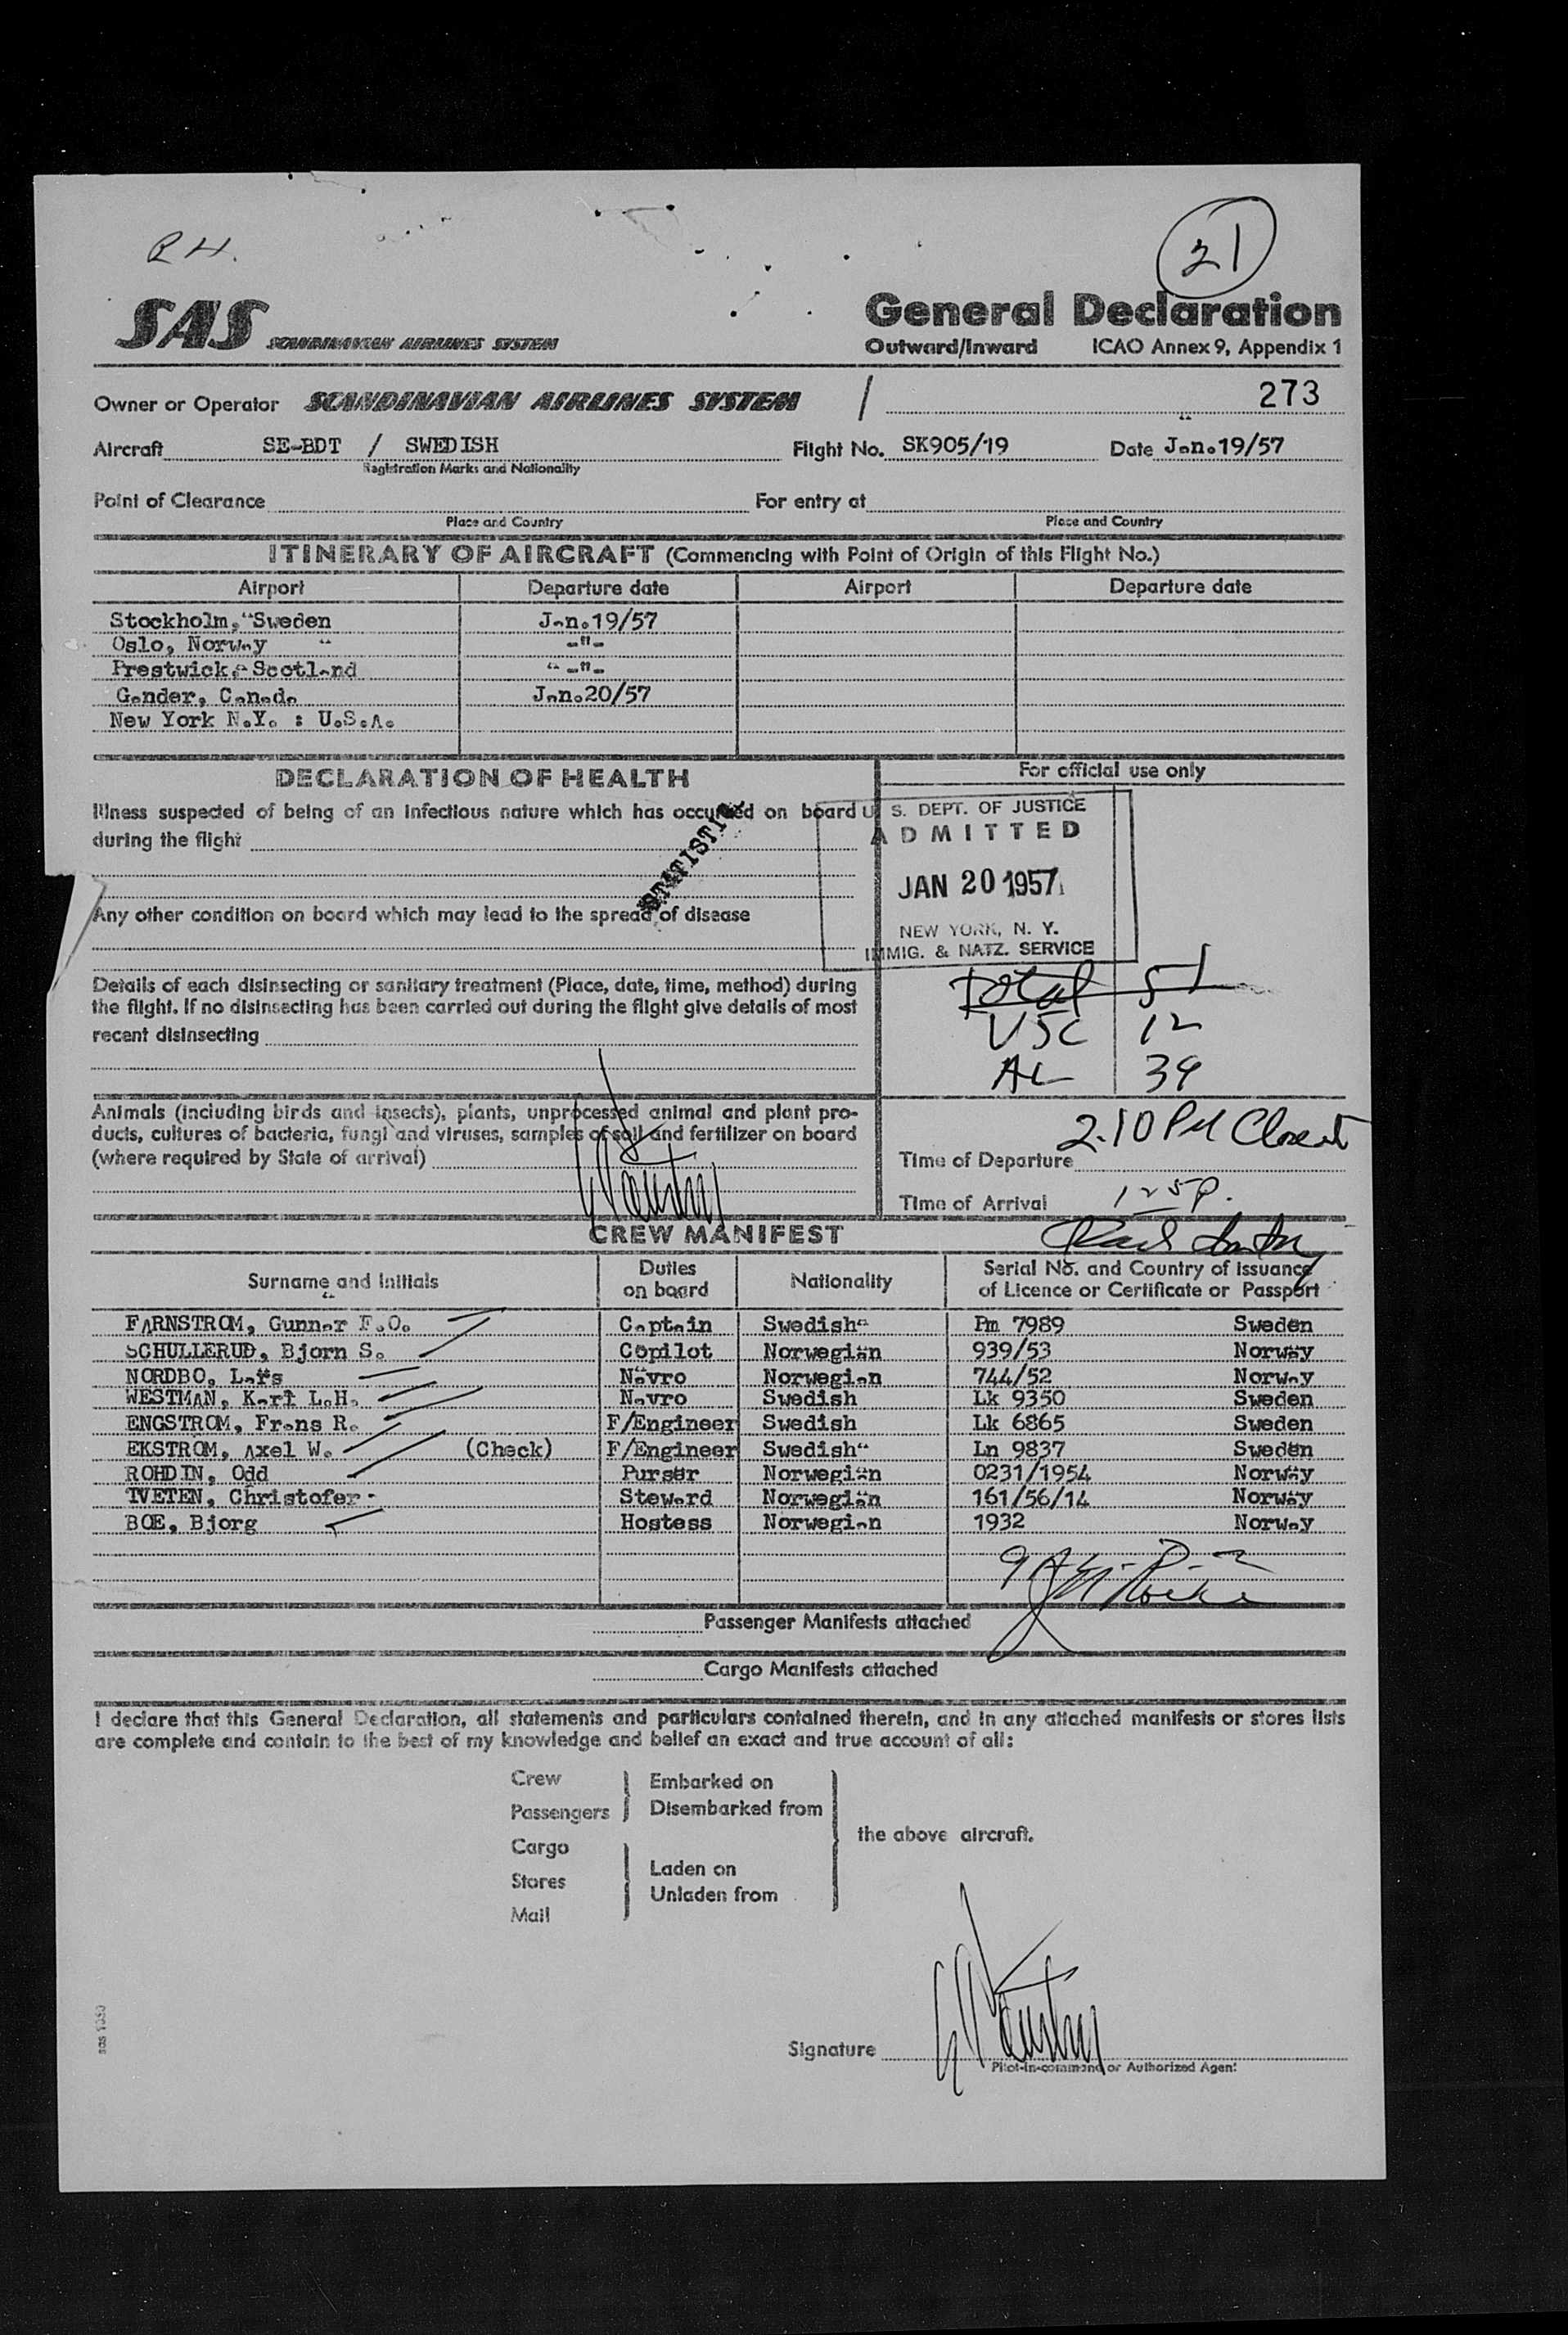 R H.
21
SAS SCANDINAVIAN AIRLINES SYSTEM
General Declaration
Outward/Inward ICAO Annex 9, Appendix 1
Owner or Operator SCANDINAVIAN AIRLINES SYSTEM / 273
Aircraft SE-BDT / SWEDISH Flight No. SK905/19 Date Jan.19/57
Registration Marks and Nationality
Point of Clearance For entry at
Place and Country Place and Country
ITINERARY OF AIRCRAFT (Commencing with Point of Origin of this Flight No.)
Airport Departure date Airport Departure date
Stockholm, Sweden Jan.19/57
Oslo, Norway -"-
Prestwick, Scotland -"-
Gander, Canada Jan.20/57
New York N.Y. : U.S.A.
DECLARATION OF HEALTH
For official use only
Illness suspected of being of an infectious nature which has occurred on board
during the flight
STATISTI
Any other condition on board which may lead to the spread of disease
U. S. DEPT. OF JUSTICE
ADMITTED
JAN 20 1957
NEW YORK, N. Y.
IMMIG. & NATZ. SERVICE
Details of each disinsecting or sanitary treatment (Place, date, time, method) during
the flight. If no disinsecting has been carried out during the flight give details of most
recent disinsecting
Total 51
USC 12
AL 39
Animals (including birds and insects), plants, unprocessed animal and plant pro-
ducts, cultures of bacteria, fungi and viruses, samples of soil and fertilizer on board
(where required by State of arrival)
2.10 PM
Time of Departure
Time of Arrival 125P.
CREW MANIFEST
Surname and Initials Duties on board Nationality Serial No. and Country of issuance of Licence or Certificate or Passport
FARNSTROM, Gunnar F.O. Captain Swedish Pm 7989 Sweden
SCHULLERUD, Bjorn S. Copilot Norwegian 939/53 Norway
NORDBO, Lars Navro Norwegian 744/52 Norway
WESTMAN, Karl L.H. Navro Swedish Lk 9350 Sweden
ENGSTROM, Frans R. F/Engineer Swedish Lk 6865 Sweden
EKSTROM, Axel W. (Check) F/Engineer Swedish Ln 9837 Sweden
ROHDIN, Odd Purser Norwegian 0231/1954 Norway
TVETEN, Christofer Steward Norwegian 161/56/14 Norway
BOE, Bjorg Hostess Norwegian 1932 Norway
Passenger Manifests attached
Cargo Manifests attached
I declare that this General Declaration, all statements and particulars contained therein, and in any attached manifests or stores lists
are complete and contain to the best of my knowledge and belief an exact and true account of all:
Crew
Passengers
Embarked on
Disembarked from
Cargo
Stores
Mail
Laden on
Unladen from
the above aircraft.
Signature
Pilot-in-command or Authorized Agent